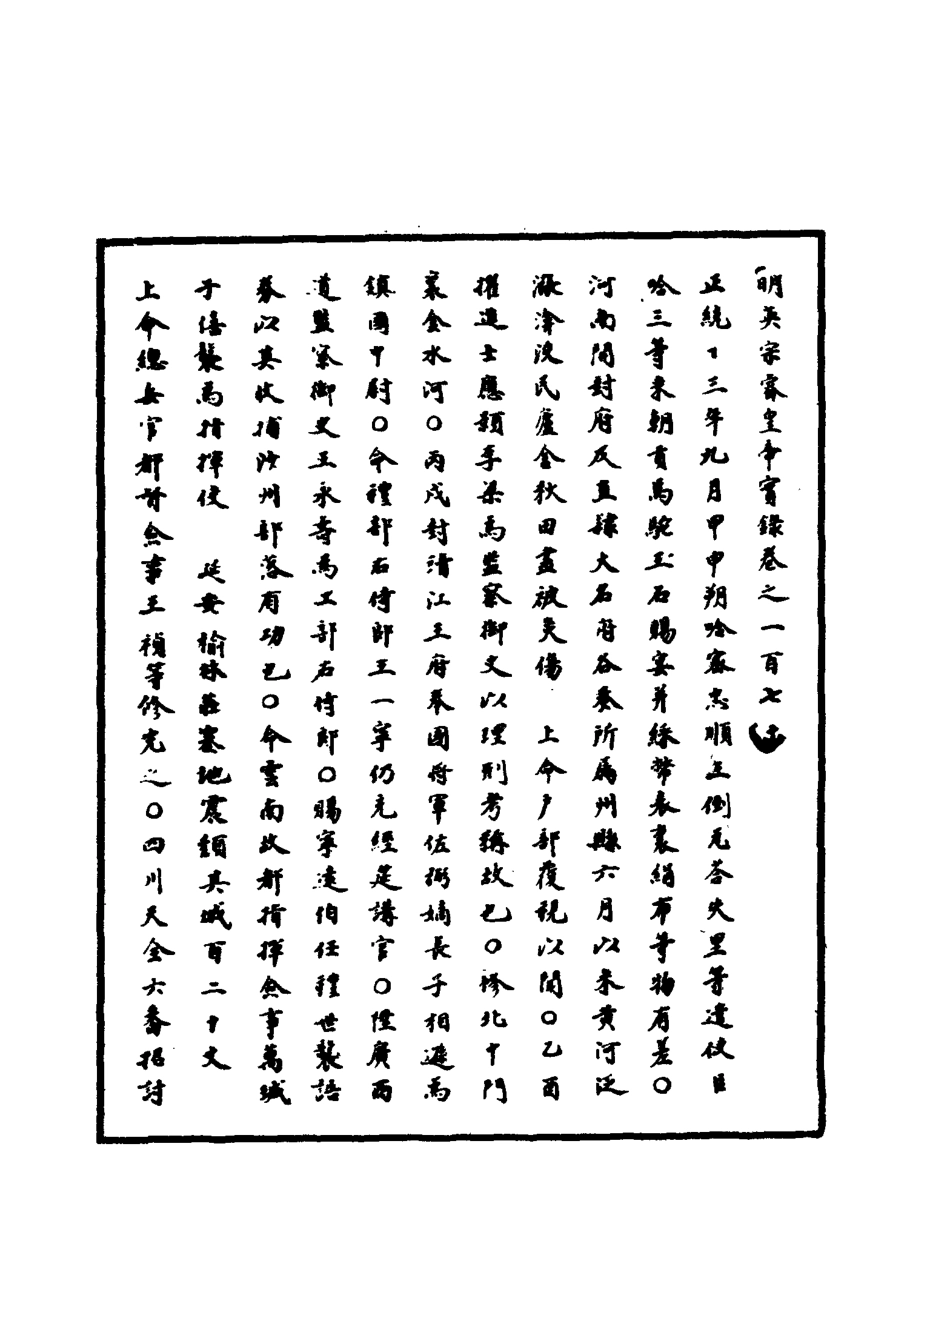 明英宗睿皇帝實錄卷之一百七十
正統十三年九月甲申朔哈密忠順王倒瓦荅失里等遣使臣
哈三等來朝貢馬駝玉石賜宴并綵幣表裏絹布等物有差○
河南開封府及直隸大名府各奏所屬州縣六月以來黃河泛
漲渰沒民廬舍秋田盡被災傷　上命戶部覆視以聞○乙酉
擢進士應顥李梁為監察御史以理刑考稱故也○修北中門
裏金水河○丙戌封靖江王府奉國將軍佐弼嫡長子相遯為
鎮國中尉○命禮部右侍郎王一寧仍充經筵講官○陞廣西
道監察御史王永壽為工部右侍郎○賜寧遠伯任禮世襲誥
券以其收捕沙州部落有功也○命雲南故都指揮僉事萬瑊
子僖襲為指揮使　延安榆林莊寨地震頹其城百二十丈
上命總兵官都督僉事王禎等修完之○四川天全六番招討